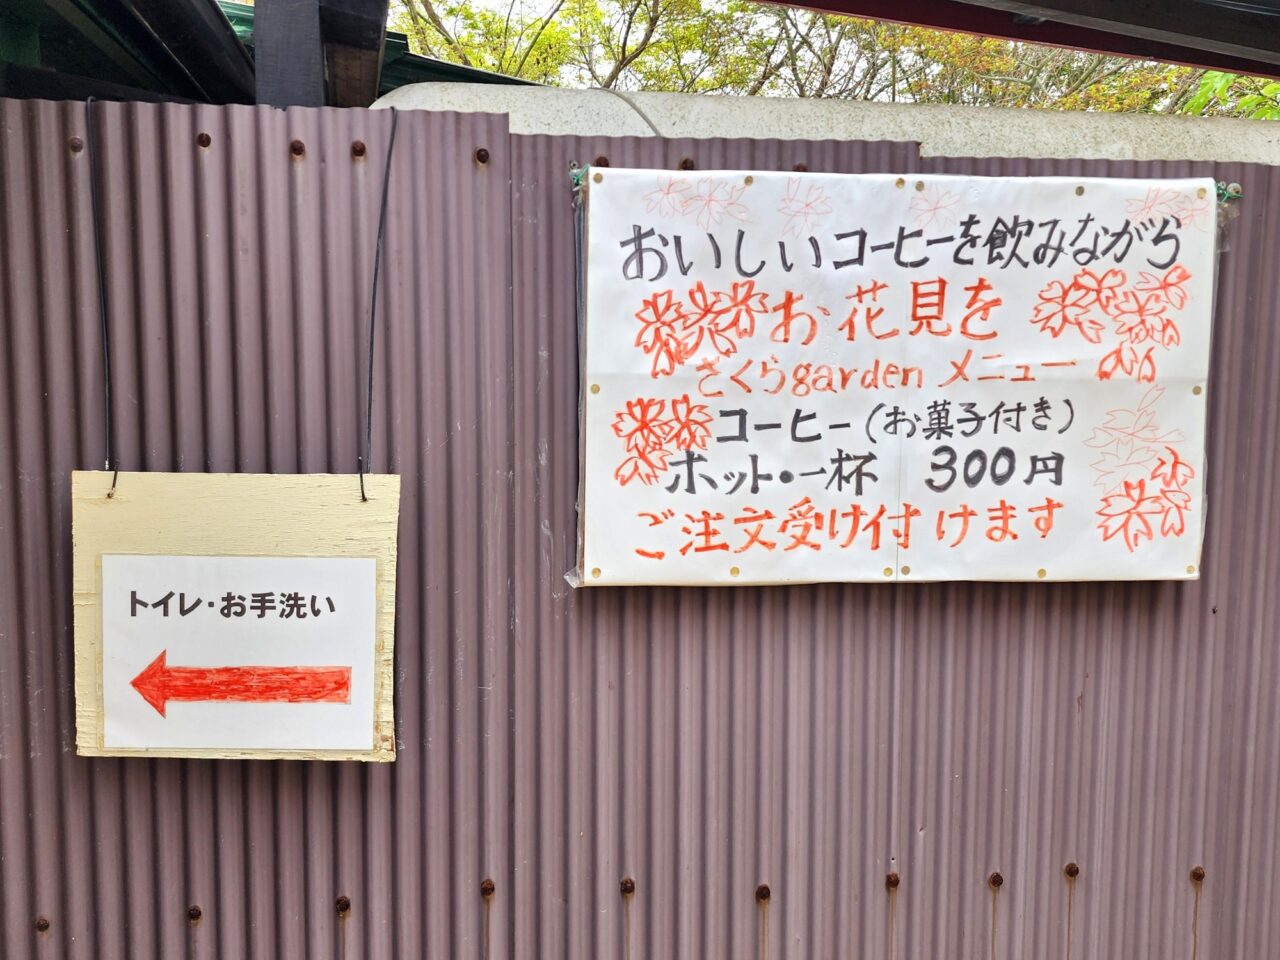 おいしいコーヒーを飲みながら
お花見を
さくらgarden メニュー
コーヒー(お菓子付き)
ホット・一杯 300円
ご注文受け付けます
トイレ・お手洗い